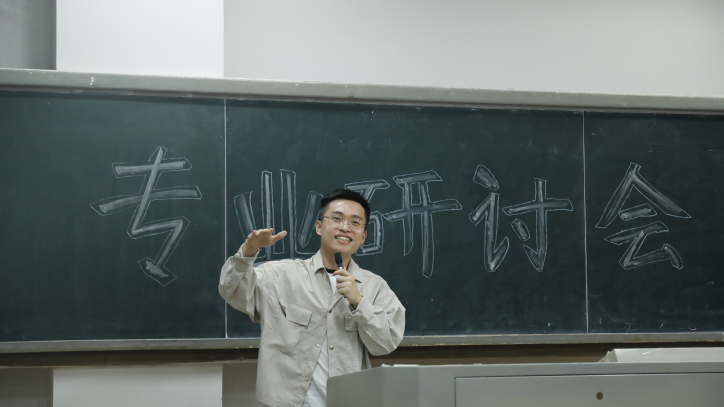 专业研讨会